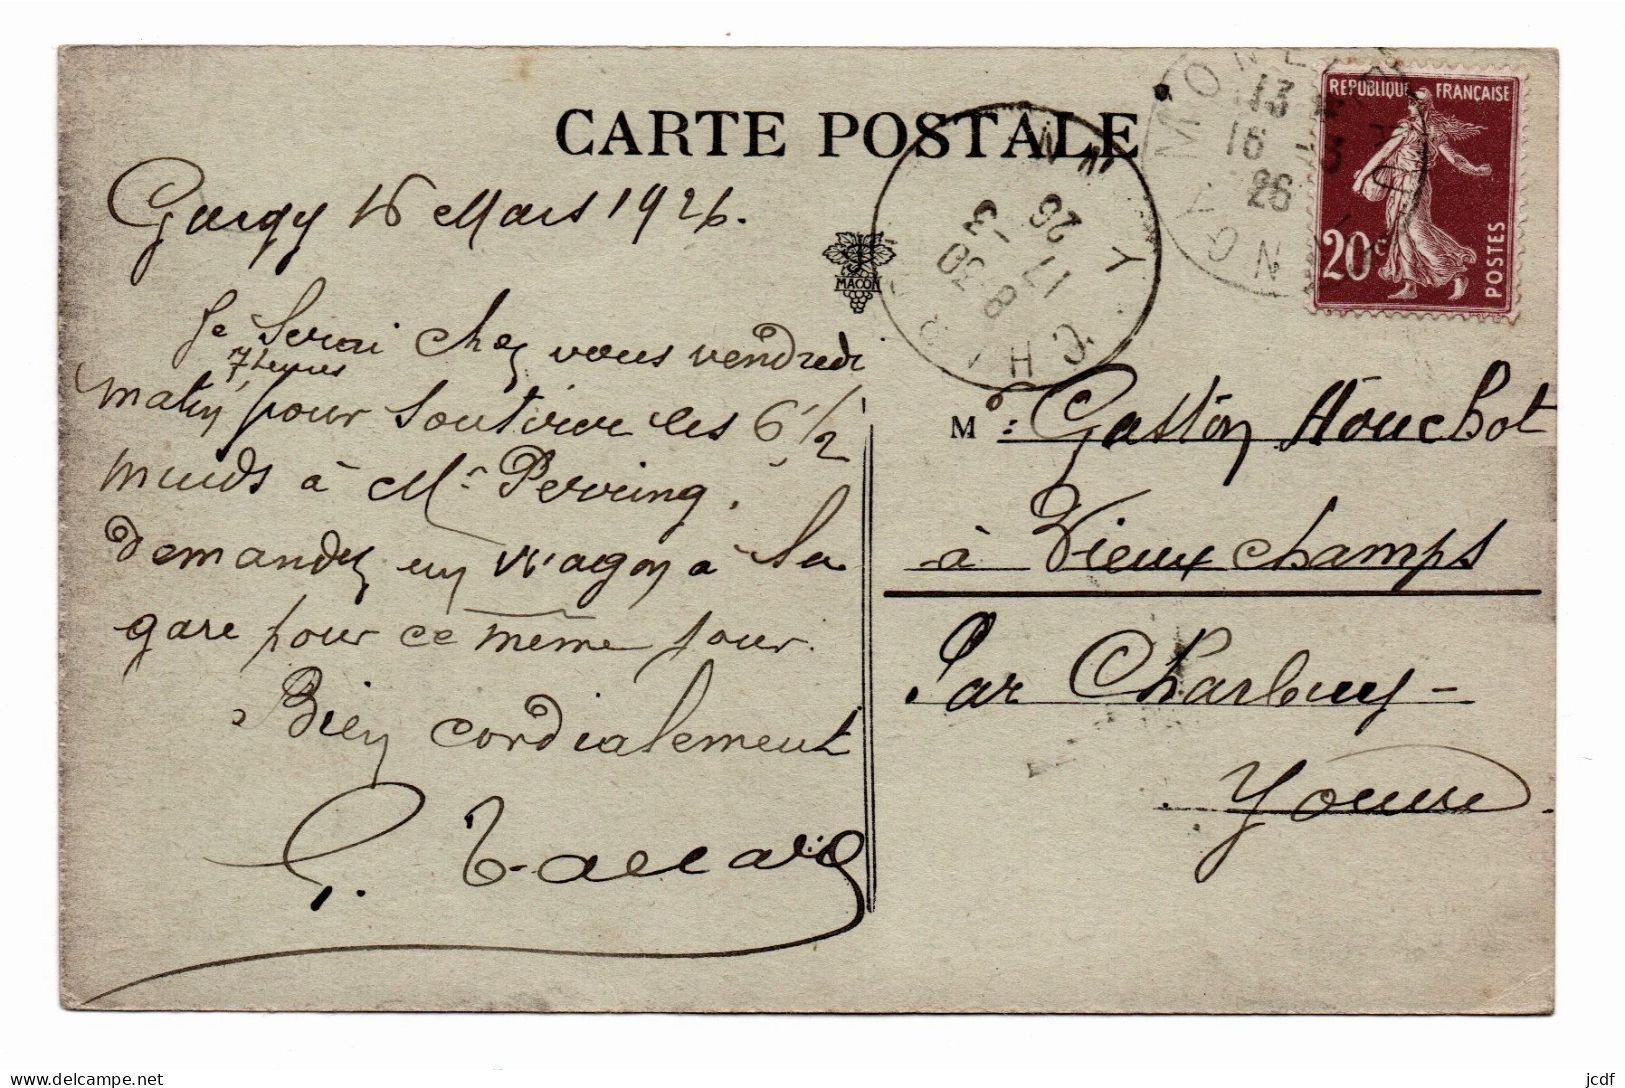 CARTE POSTALE
Gurgy 16 Mars 1926.
MACON
Je Serai chez vous vendredi
7 heures
matin, pour Soutirer les 6 1/2
muids à Mr
demandez un wagon a la
gare pour ce même jour.
Bien cordialement
REPUBLIQUE FRANÇAISE
20c
POSTES
MONETEAU
13
16 - 3
26
YONNE
CHARBUY
YONNE
8 30
17 - 3
26
Mr : Gaston Houchot
à Vieuxchamps
Par Charbuy -
Yonne.
delcampe.net
jcdf